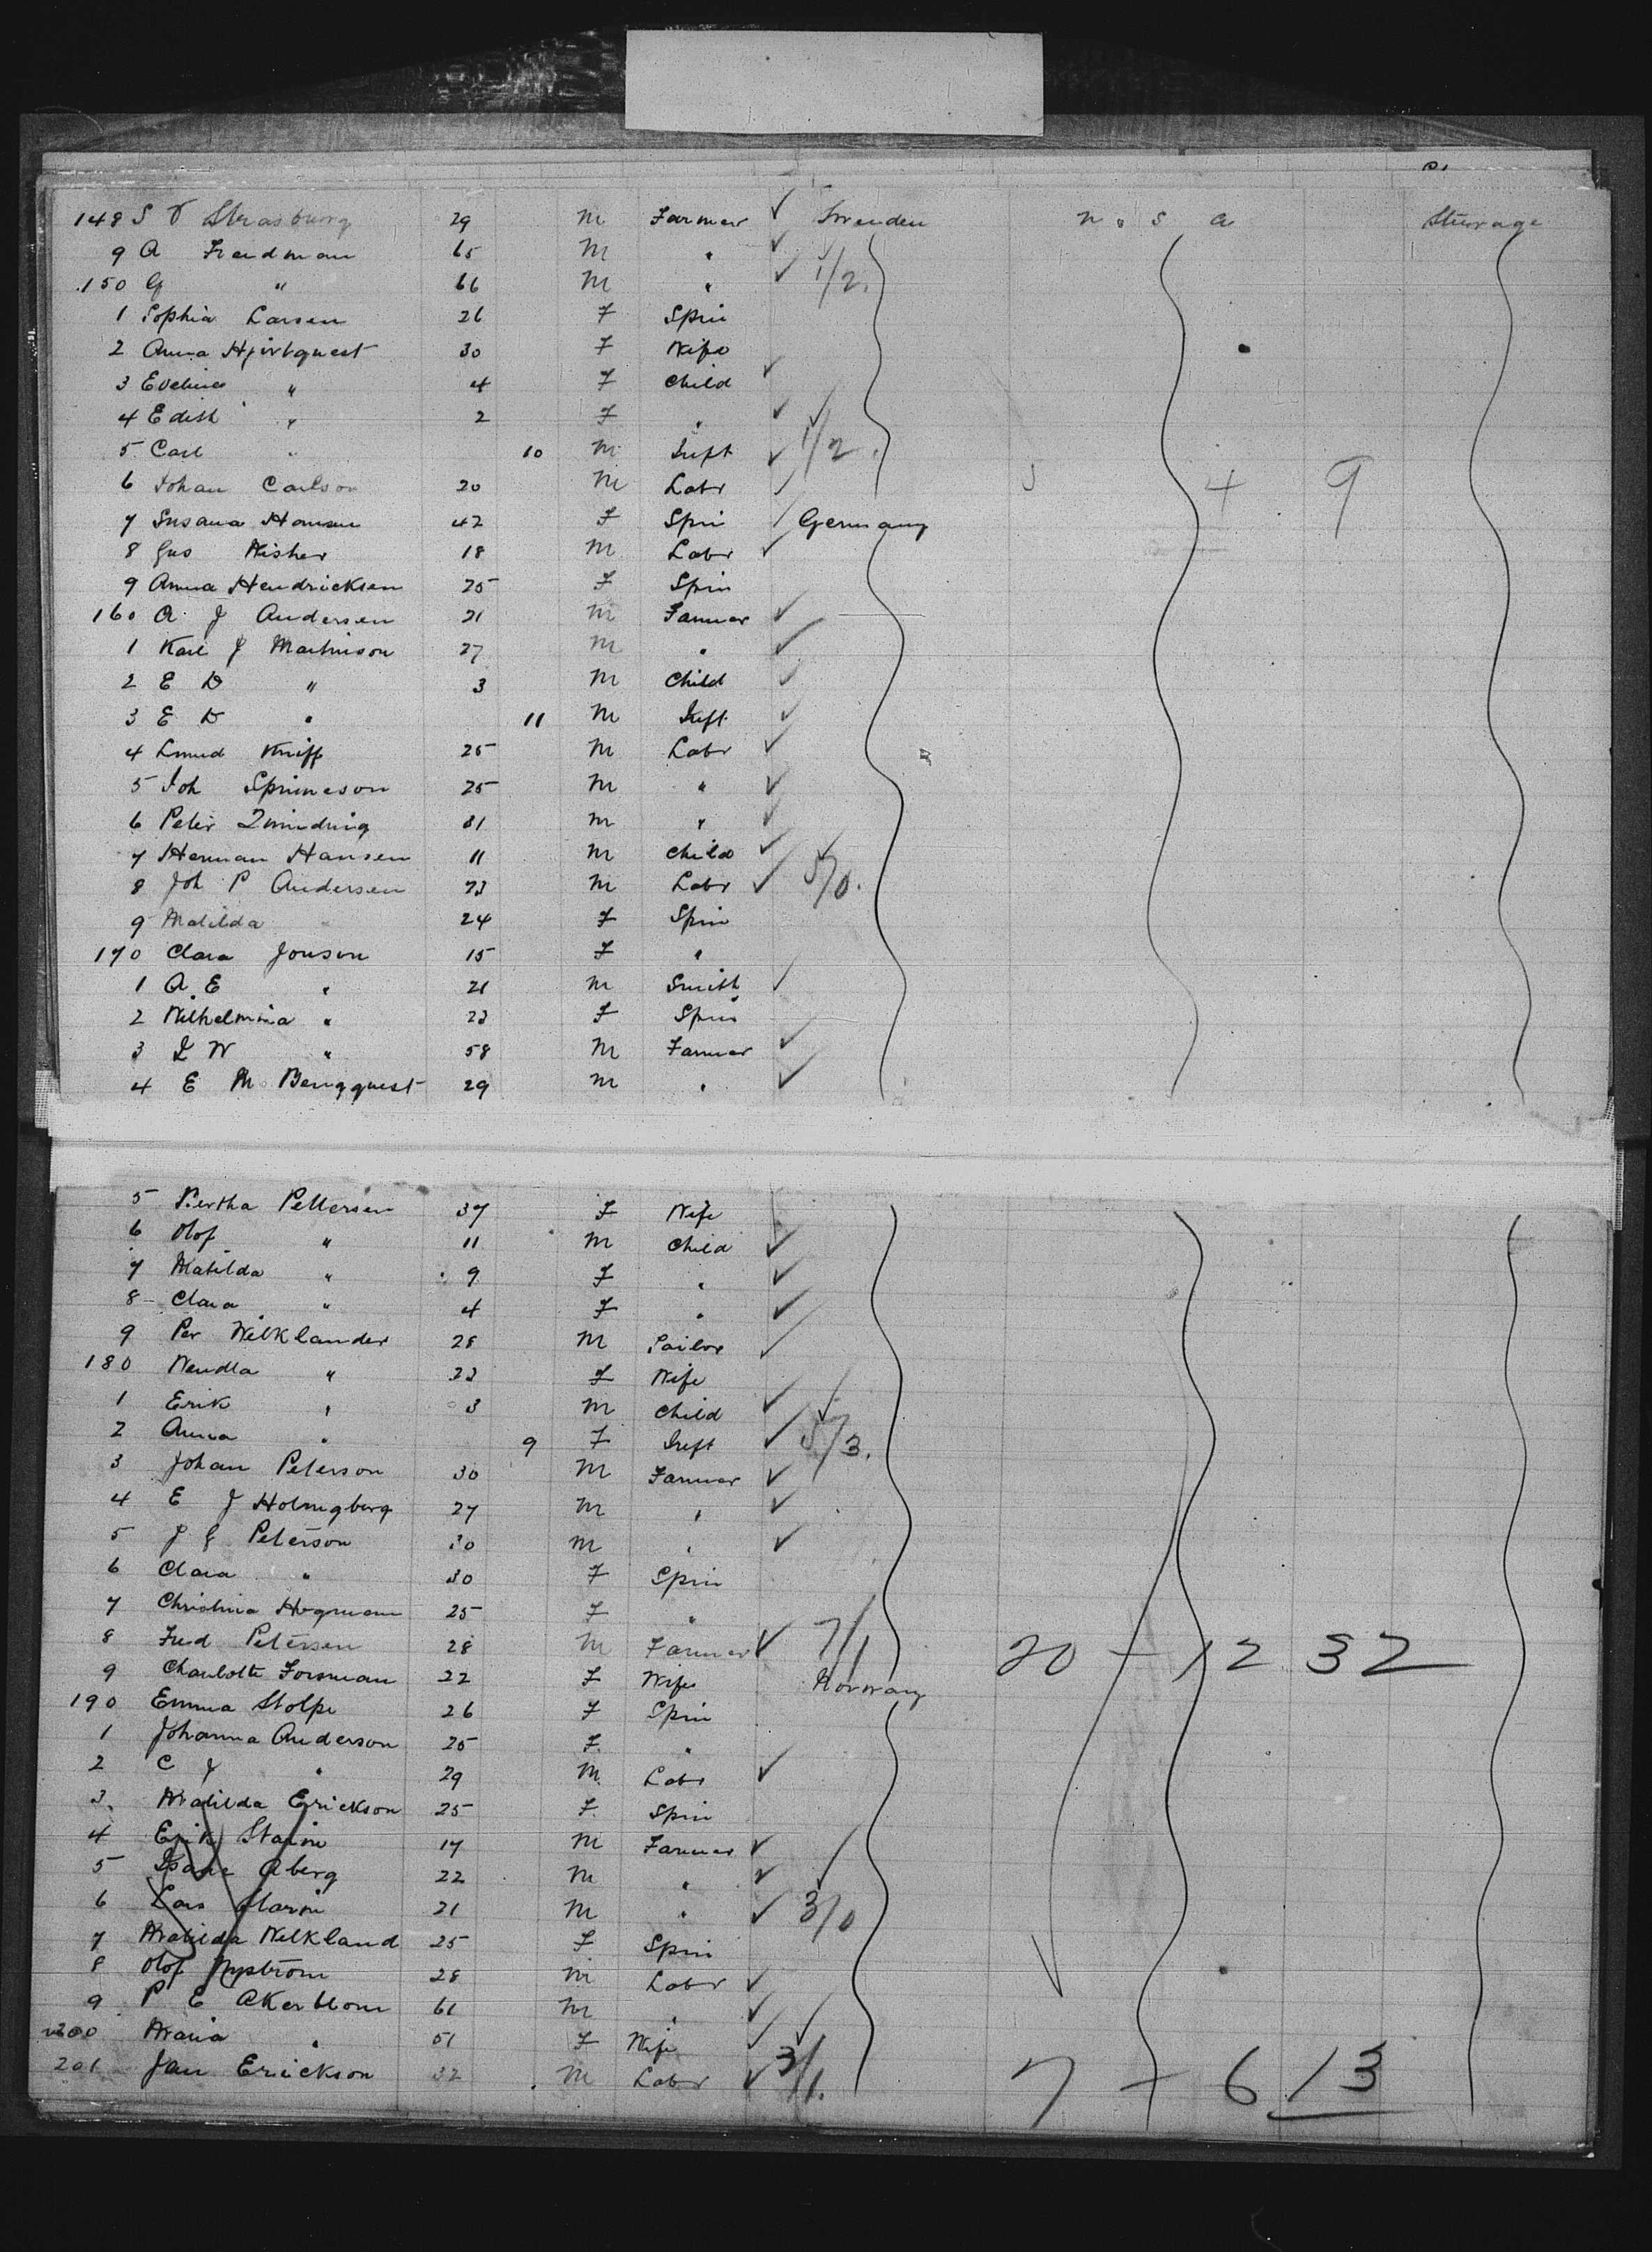 148 S V Strasburg 29 M Farmer ✓ Sweeden U. S a Steerage
9 A Freidman 65 M " ✓
150 G " 66 M " ✓ 1/2.
1 Sophia Larsen 26 F Spin
2 Anna Hjirtquest 30 F Wife
3 Evelina " 4 F Child ✓
4 Edith " 2 F " ✓
5 Carl " 10 M Inft ✓ 1/2.
6 Johan Carlson 20 M Labr ✓ 5 4 9
7 Susana Hansen 42 F Spin / Germany
8 Gus Wisher 18 M Labr ✓
9 Anna Hendricksen 25 F Spin
160 A. J Andersen 21 M Farmer ✓
1 Karl J Martinson 27 M " ✓
2 E D " 3 M Child ✓
3 E D " 11 M Inft ✓
4 Kniff 25 M Labr ✓
5 Joh Sprineson 25 M " ✓
6 Peter 31 M " ✓
7 Herman Hansen 11 M Child ✓
8 Joh P Andersen 23 M Labr ✓ 5/0.
9 Matilda " 24 F Spin
170 Clara Jonson 15 F "
1 A. E " 21 M Smith ✓
2 Wilhelmina " 23 F Spin
3 I W " 58 M Farmer ✓
4 E M Bergquest 29 M " ✓
5 Bertha Pettersen 37 F Wife
6 Olof " 11 M Child ✓
7 Matilda " 9 F " ✓
8 Clara " 4 F " ✓
9 Per Wilklander 28 M Sailor ✓
180 Wendla " 23 F Wife
1 Erik " 3 M Child ✓
2 Anna " 9 F Inft ✓ 5/3.
3 Johan Peterson 30 M Farmer ✓
4 E J Holmgberg 27 M " ✓
5 J G Peterson 30 M " ✓
6 Clara " 30 F Spin
7 Christina Hegman 25 F "
8 Fred Petersen 28 M Farmer ✓ 7/1 20 - 12 32
9 Charlotte Forsman 22 F Wife Norway
190 Emma Stolpe 26 F Spin
1 Johanna Anderson 25 F. "
2 C J " 29 M. Labr ✓
3. Matilda Erickson 25 F. Spin
4 Erik Starin 17 M Farmer ✓
5 Isaac Aberg 22 M " ✓
6 Lars Starin 21 M " ✓ 3/0
7 Matilda Wilkland 25 F Spin
8 Olof Nyström 28 M Labr ✓
9 P E Akerblom 61 M " ✓
200 Maria " 51 F Wife ✓
201 Jan Erickson 32 M Labr ✓ 3/1. 7 - 6 13